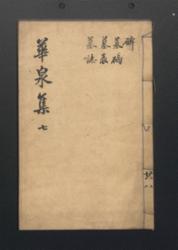 華泉集 七
碑
墓碣
墓表
墓誌